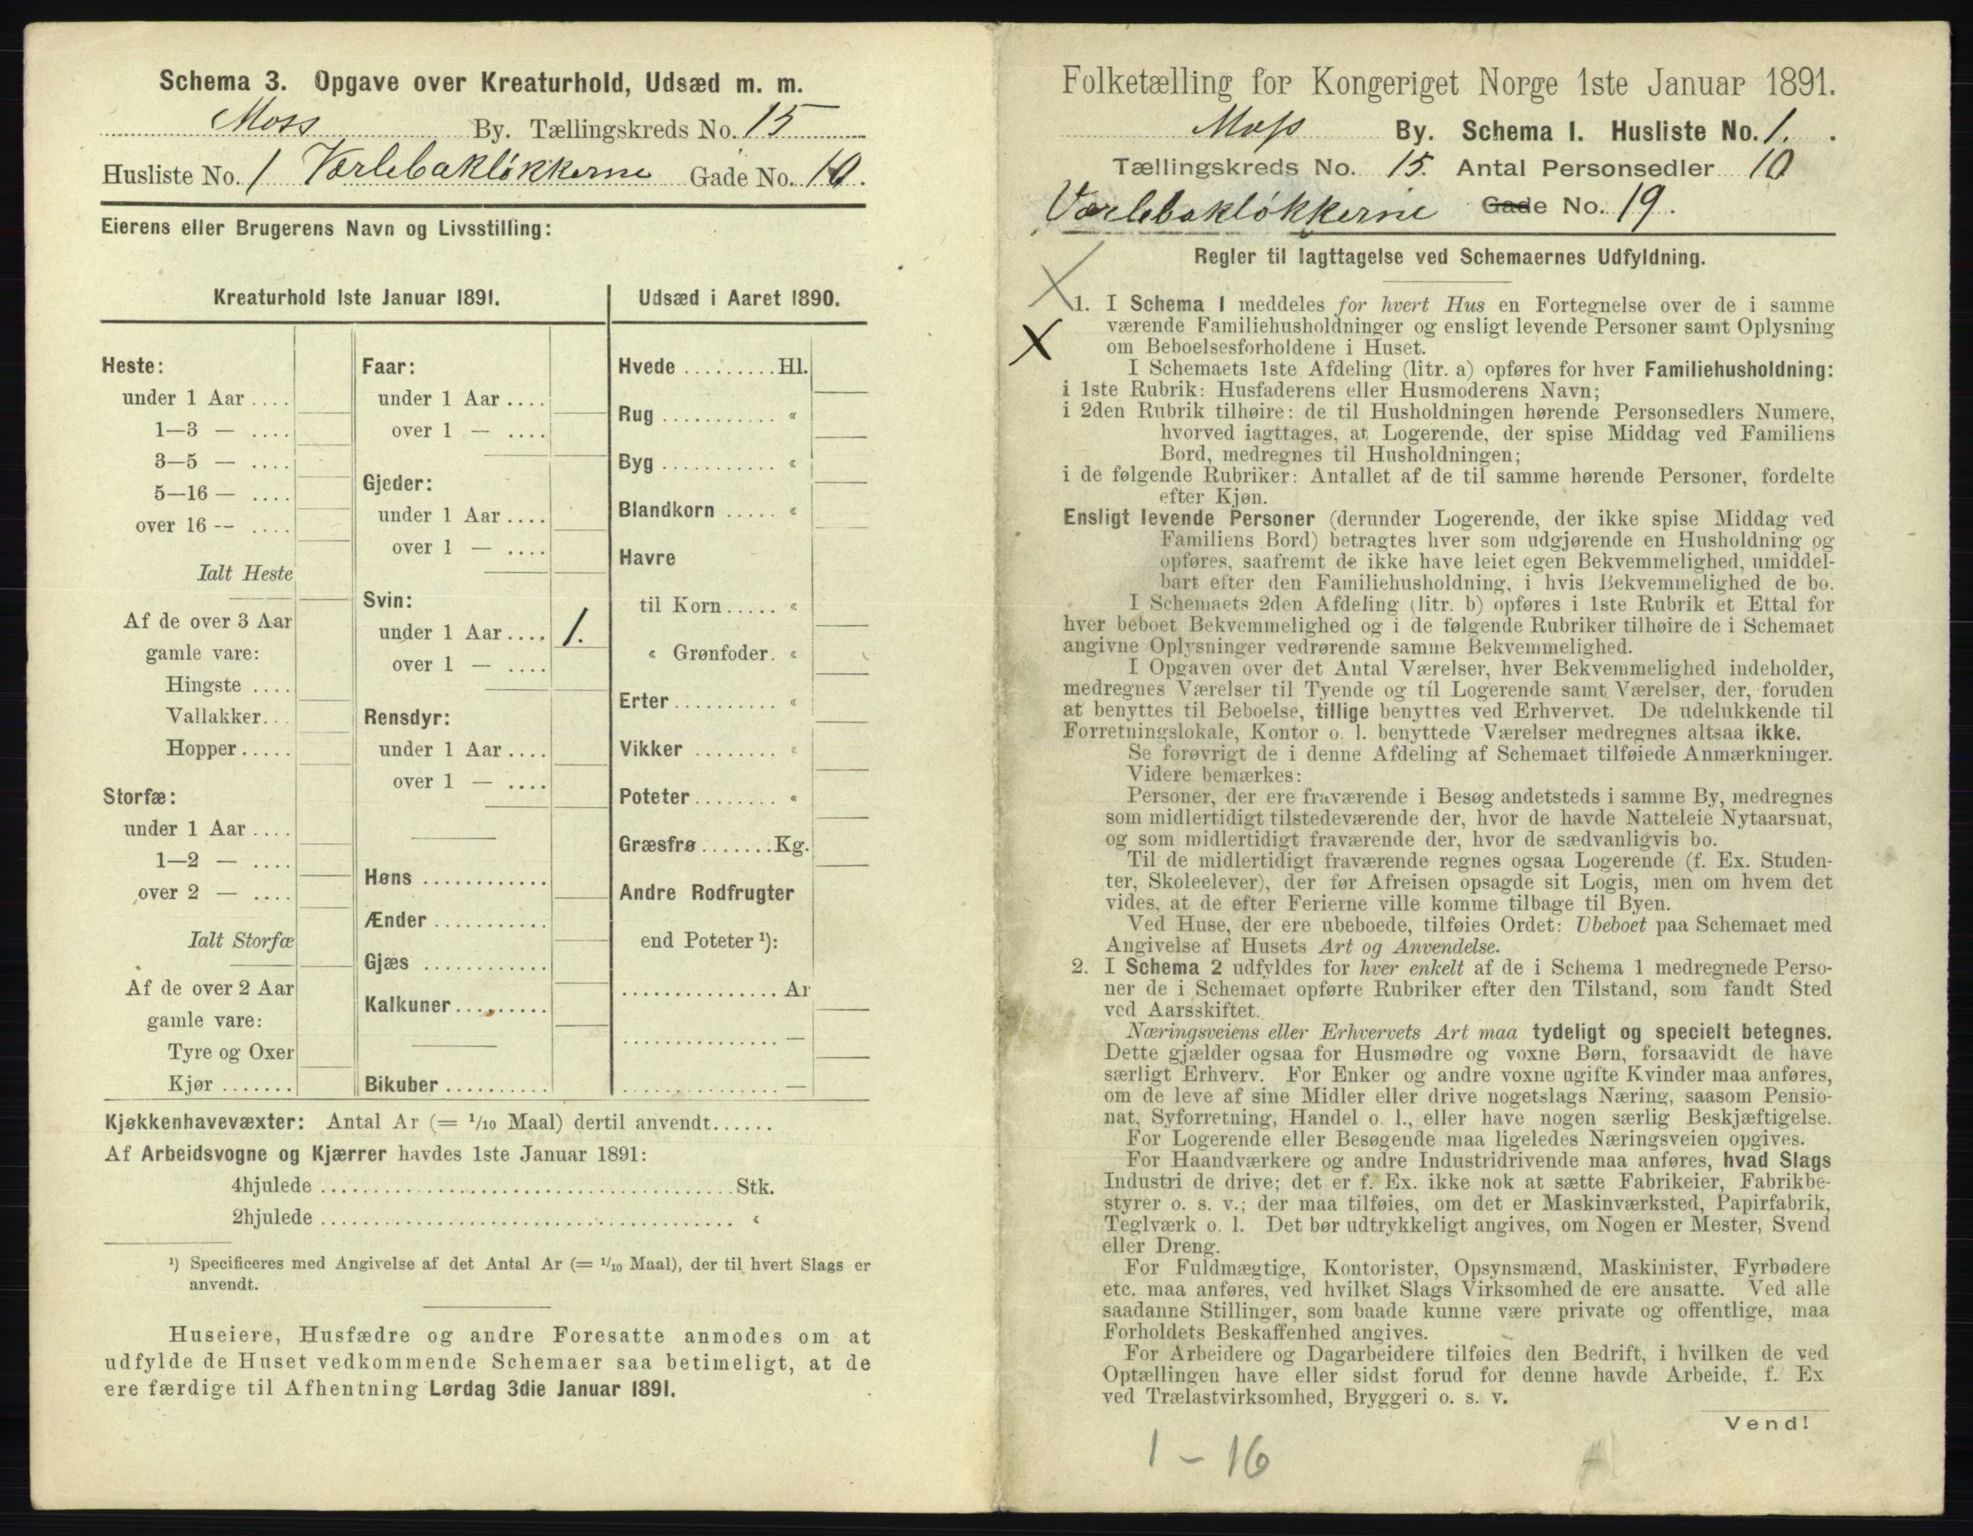 Schema 3. Opgave over Kreaturhold, Udsæd m. m.
Moss By. Tællingskreds No. 15
Husliste No. 1 Værlebakløkkerne Gade No. 10.
Eierens eller Brugerens Navn og Livsstilling:
Kreaturhold 1ste Januar 1891.
Heste:
under 1 Aar ....
1—3 — ....
3—5 — ....
5—16 — ....
over 16 — ....
Ialt Heste
Af de over 3 Aar
gamle vare:
Hingste ....
Vallakker...
Hopper .....
Storfæ:
under 1 Aar ....
1—2 — ....
over 2 — ....
Ialt Storfæ
Af de over 2 Aar
gamle vare:
Tyre og Oxer
Kjør .......
Faar:
under 1 Aar ....
over 1 — ....
Gjeder:
under 1 Aar ....
over 1 — ....
Svin:
under 1 Aar .... 1.
over 1 — ....
Rensdyr:
under 1 Aar ....
over 1 — ....
Høns ............
Ænder ...........
Gjæs ............
Kalkuner .........
Bikuber ..........
Udsæd i Aaret 1890.
Hvede ......... Hl.
Rug ........... «
Byg ........... «
Blandkorn ..... «
Havre
til Korn ..... «
« Grønfoder. «
Erter .......... «
Vikker ......... «
Poteter ........ «
Græsfrø ....... Kg.
Andre Rodfrugter
end Poteter ¹):
............... Ar
............... —
............... —
Kjøkkenhavevæxter: Antal Ar (= 1/10 Maal) dertil anvendt......
Af Arbeidsvogne og Kjærrer havdes 1ste Januar 1891:
4hjulede ........................................ Stk.
2hjulede ........................................ «
¹) Specificeres med Angivelse af det Antal Ar (= 1/10 Maal), der til hvert Slags er
anvendt.
Huseiere, Husfædre og andre Foresatte anmodes om at
udfylde de Huset vedkommende Schemaer saa betimeligt, at de
ere færdige til Afhentning Lørdag 3die Januar 1891.
Folketælling for Kongeriget Norge 1ste Januar 1891.
Moss By. Schema I. Husliste No. 1.
Tællingskreds No. 15. Antal Personsedler 10
Værlebakløkkerne Gade No. 19.
Regler til Iagttagelse ved Schemaernes Udfyldning.
X
X
1. I Schema 1 meddeles for hvert Hus en Fortegnelse over de i samme
værende Familiehusholdninger og ensligt levende Personer samt Oplysning
om Beboelsesforholdene i Huset.
I Schemaets 1ste Afdeling (litr. a) opføres for hver Familiehusholdning:
i 1ste Rubrik: Husfaderens eller Husmoderens Navn;
i 2den Rubrik tilhøire: de til Husholdningen hørende Personsedlers Numere,
hvorved iagttages, at Logerende, der spise Middag ved Familiens
Bord, medregnes til Husholdningen;
i de følgende Rubriker: Antallet af de til samme hørende Personer, fordelte
efter Kjøn.
Ensligt levende Personer (derunder Logerende, der ikke spise Middag ved
Familiens Bord) betragtes hver som udgjørende en Husholdning og
opføres, saafremt de ikke have leiet egen Bekvemmelighed, umiddel-
bart efter den Familiehusholdning, i hvis Bekvemmelighed de bo.
I Schemaets 2den Afdeling (litr. b) opføres i 1ste Rubrik et Ettal for
hver beboet Bekvemmelighed og i de følgende Rubriker tilhøire de i Schemaet
angivne Oplysninger vedrørende samme Bekvemmelighed.
I Opgaven over det Antal Værelser, hver Bekvemmelighed indeholder,
medregnes Værelser til Tyende og til Logerende samt Værelser, der, foruden
at benyttes til Beboelse, tillige benyttes ved Erhvervet. De udelukkende til
Forretningslokale, Kontor o. l. benyttede Værelser medregnes altsaa ikke.
Se forøvrigt de i denne Afdeling af Schemaet tilføiede Anmærkninger.
Videre bemærkes:
Personer, der ere fraværende i Besøg andetsteds i samme By, medregnes
som midlertidigt tilstedeværende der, hvor de havde Natteleie Nytaarsnat,
og som midlertidigt fraværende der, hvor de sædvanligvis bo.
Til de midlertidigt fraværende regnes ogsaa Logerende (f. Ex. Studen-
ter, Skoleelever), der før Afreisen opsagde sit Logis, men om hvem det
vides, at de efter Ferierne ville komme tilbage til Byen.
Ved Huse, der ere ubeboede, tilføies Ordet: Ubeboet paa Schemaet med
Angivelse af Husets Art og Anvendelse.
2. I Schema 2 udfyldes for hver enkelt af de i Schema 1 medregnede Perso-
ner de i Schemaet opførte Rubriker efter den Tilstand, som fandt Sted
ved Aarsskiftet.
Næringsveiens eller Erhvervets Art maa tydeligt og specielt betegnes.
Dette gjælder ogsaa for Husmødre og voxne Børn, forsaavidt de have
særligt Erhverv. For Enker og andre voxne ugifte Kvinder maa anføres,
om de leve af sine Midler eller drive nogetslags Næring, saasom Pensio-
nat, Syforretning, Handel o. l., eller have nogen særlig Beskjæftigelse.
For Logerende eller Besøgende maa ligeledes Næringsveien opgives.
For Haandværkere og andre Industridrivende maa anføres, hvad Slags
Industri de drive; det er f. Ex. ikke nok at sætte Fabrikeier, Fabrikbe-
styrer o. s. v.; der maa tilføies, om det er Maskinværksted, Papirfabrik,
Teglværk o. l. Det bør udtrykkeligt angives, om Nogen er Mester, Svend
eller Dreng.
For Fuldmægtige, Kontorister, Opsynsmænd, Maskinister, Fyrbødere
etc. maa anføres, ved hvilket Slags Virksomhed de ere ansatte. Ved alle
saadanne Stillinger, som baade kunne være private og offentlige, maa
Forholdets Beskaffenhed angives.
For Arbeidere og Dagarbeidere tilføies den Bedrift, i hvilken de ved
Optællingen have eller sidst forud for denne havde Arbeide, f. Ex
ved Trælastvirksomhed, Bryggeri o. s. v.
Vend!
1 - 16